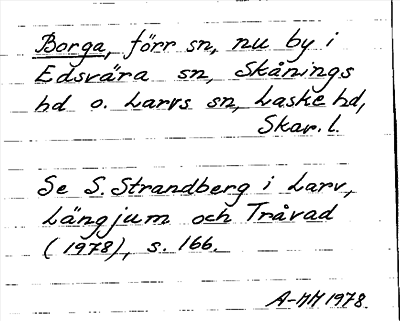 Borga, förr sn, nu by i
Edsvära sn, Skånings
hd o. Larvs sn, Laske hd,
Skar. l.
Se S. Strandberg i Larv,
Längjum och Tråvad
(1978), s. 166.
A-HH 1978.